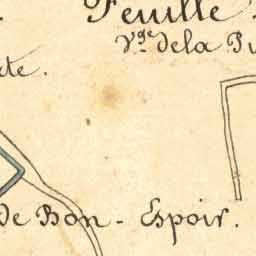 Feuille
Vge de la
te.
de Bon - Espoir.